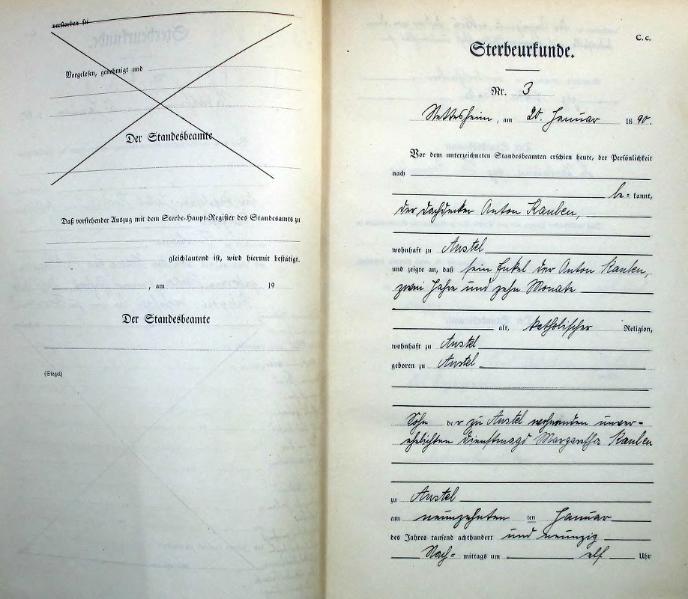 verstorben sei
Vorgelesen, genehmigt und
Der Standesbeamte.
Daß vorstehender Auszug mit dem Sterbe-Haupt-Register des Standesamts zu
gleichlautend ist, wird hiermit bestätigt.
, am 19
Der Standesbeamte
(Siegel)
C. c.
Sterbeurkunde.
Nr. 3
Nettesheim, am 20. Januar 1890.
Vor dem unterzeichneten Standesbeamten erschien heute, der Persönlichkeit
nach
be= kannt,
der Dachdecker Anton Kauben,
wohnhaft zu Anstel
und zeigte an, daß sein Enkel der Anton Kauben,
zwei Jahre und zehn Monate
alt, katholischer Religion,
wohnhaft zu Anstel
geboren zu Anstel
Sohn der zu Anstel wohnenden unver=
ehelichten Dienstmagd Margaretha Kauben
zu Anstel
am neunzehnten den Januar
des Jahres tausend achthundert und neunzig
Nach= mittags um elf Uhr